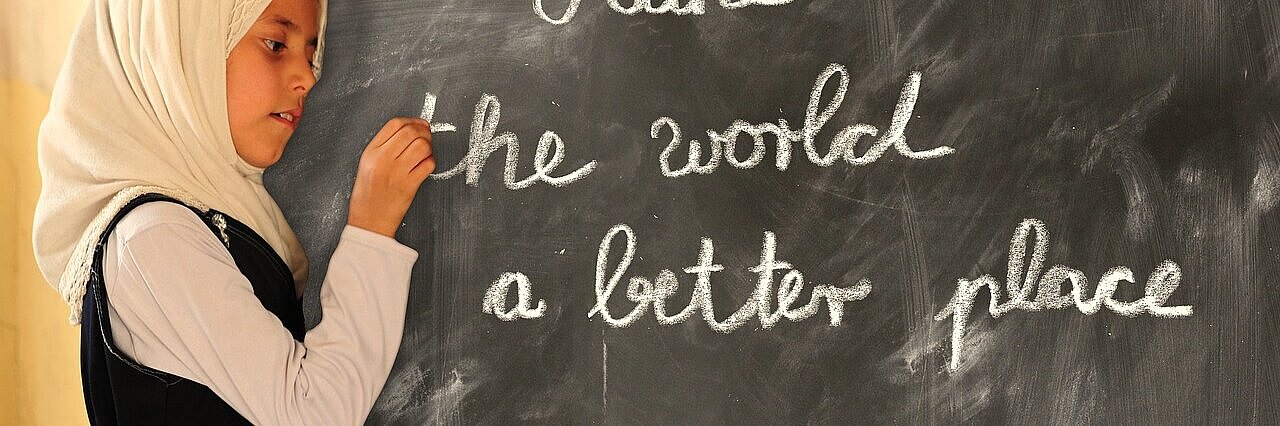 the world
a better place